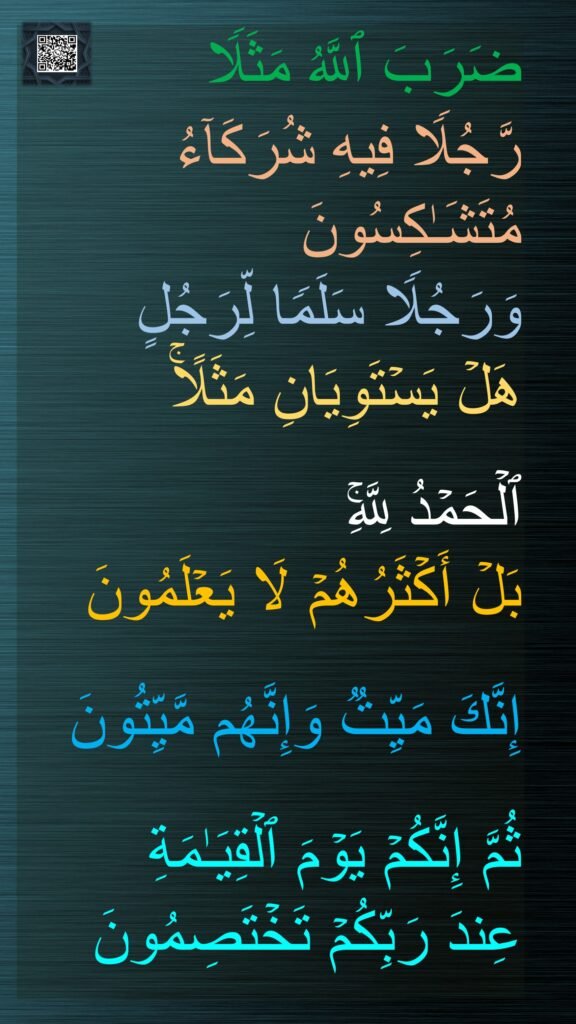 ضَرَبَ ٱللَّهُ مَثَلًا
رَّجُلًا فِيهِ شُرَكَآءُ
مُتَشَـٰكِسُونَ
وَرَجُلًا سَلَمًا لِّرَجُلٍ
هَلۡ يَسۡتَوِيَانِ مَثَلًاۚ
ٱلۡحَمۡدُ لِلَّهِۚ
بَلۡ أَكۡثَرُهُمۡ لَا يَعۡلَمُونَ
إِنَّكَ مَيِّتٌ وَإِنَّهُم مَّيِّتُونَ
ثُمَّ إِنَّكُمۡ يَوۡمَ ٱلۡقِيَـٰمَةِ
عِندَ رَبِّكُمۡ تَخۡتَصِمُونَ